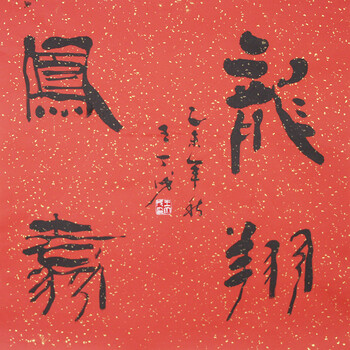 龍翔
鳳翥
乙未年秋